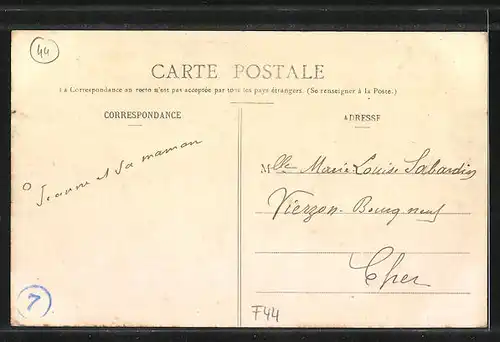 44
CARTE POSTALE
La Correspondance au recto n'est pas acceptée par tous les pays étrangers. (Se renseigner à la Poste.)
CORRESPONDANCE
Jeanne et sa maman
7
ADRESSE
Mlle Marie-Louise Sabardin
Vierzon-Bourgneuf
Cher
F44